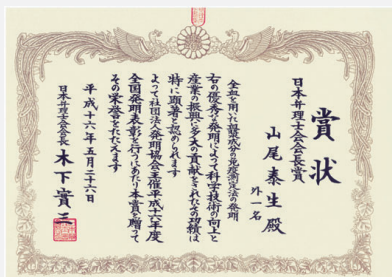 賞状
日本弁理士会会長賞
山尾泰生殿
外一名
全血を用いた
免疫測定法の発明
右の優秀な発明によって科学技術の向上と
産業の振興に多大の貢献をされたその功績は
特に顕著と認められます
よって社団法人発明協会主催平成十六年度
全国発明表彰を行うにあたり本賞を贈って
その栄誉をたたえます
平成十六年五月二十六日
日本弁理士会会長
木下實三